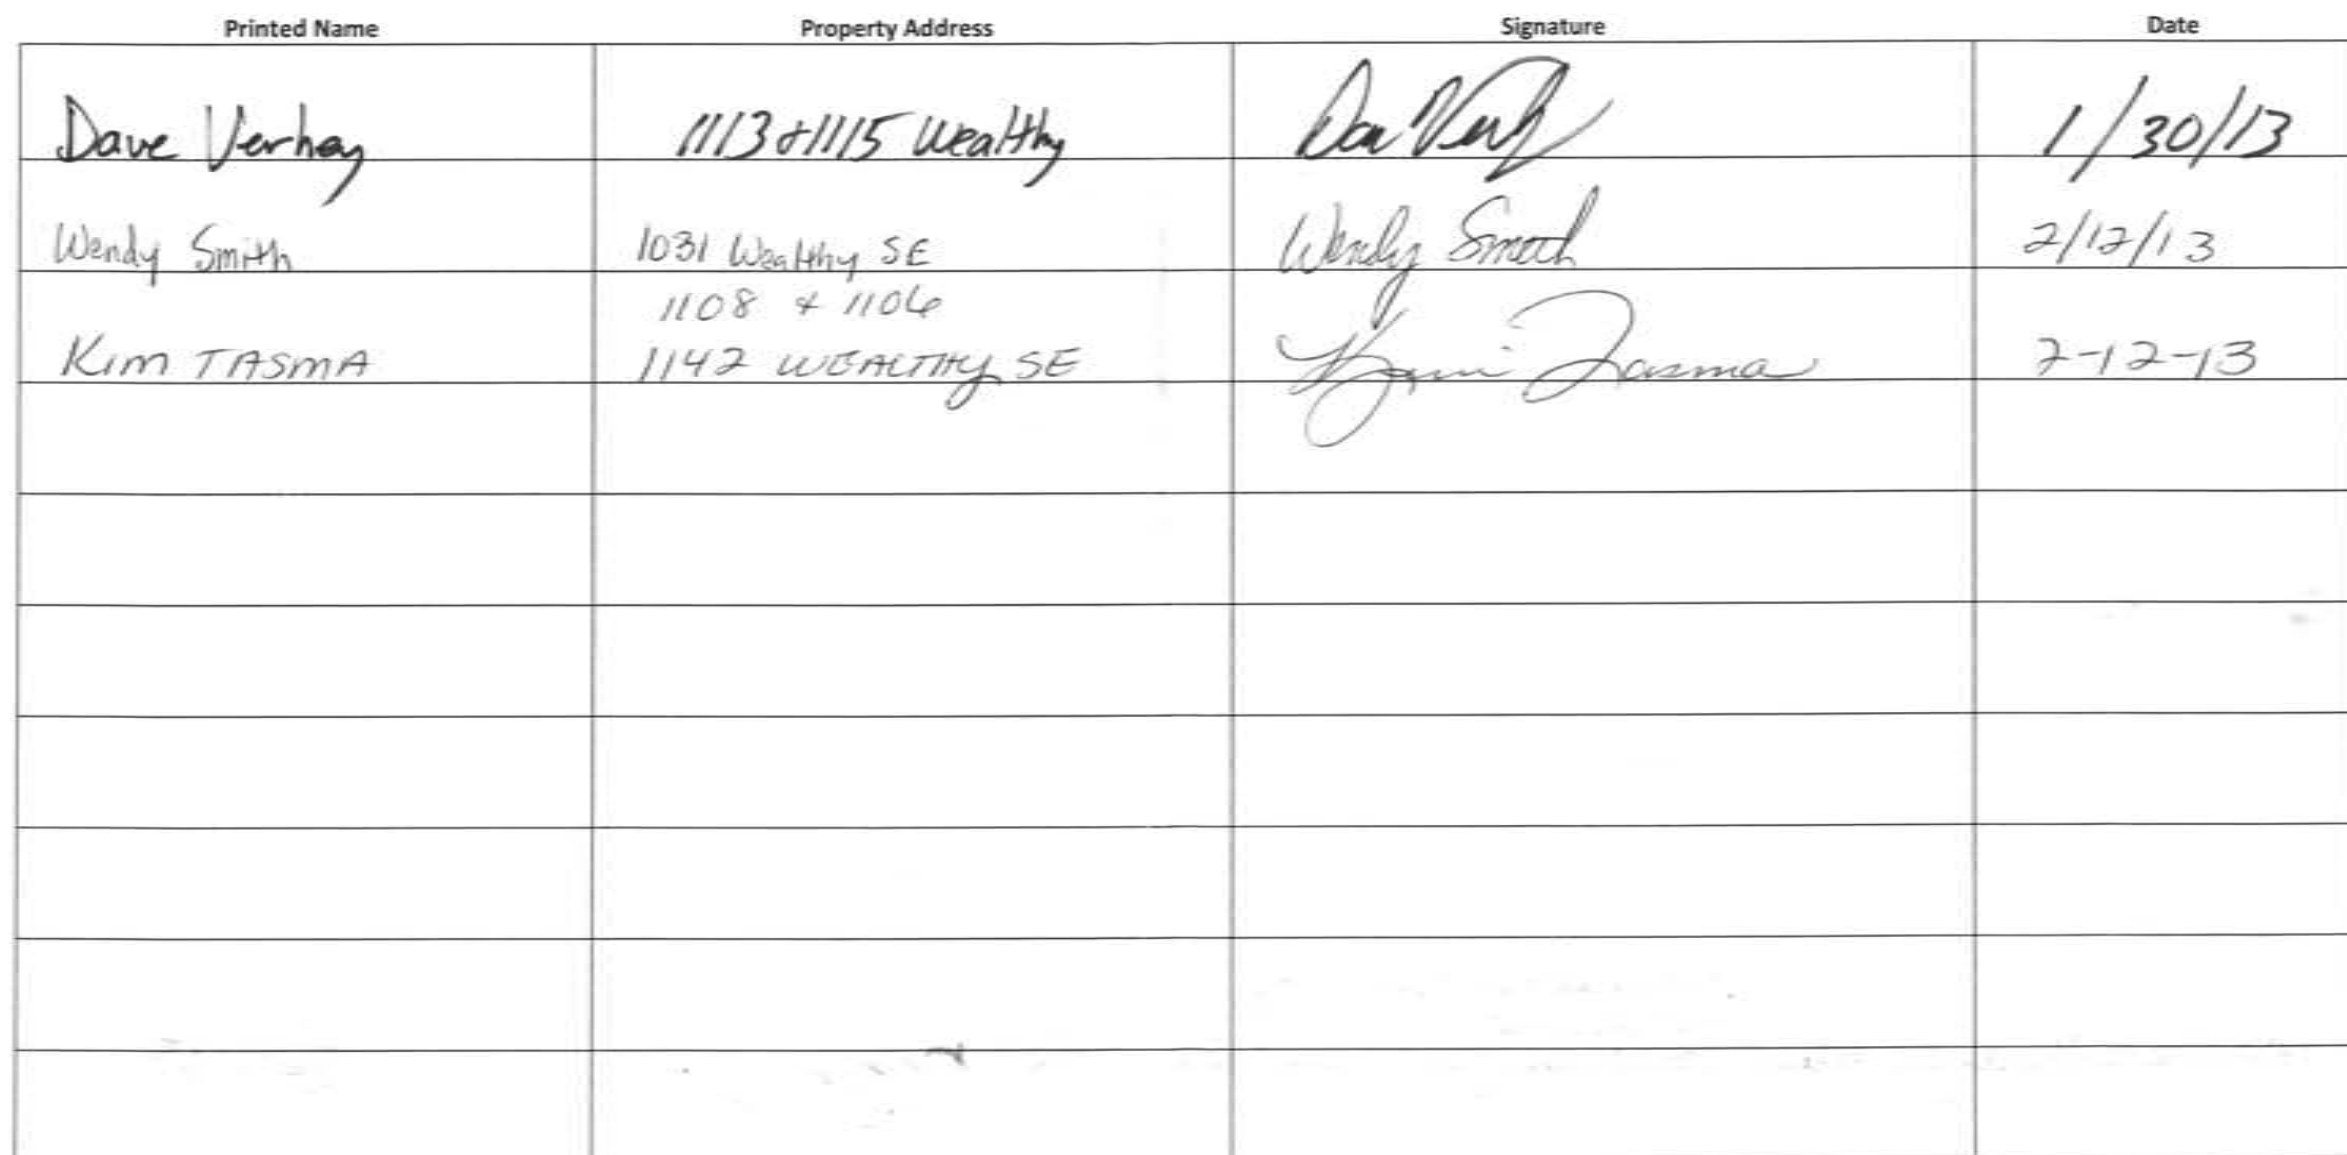 Printed Name Property Address Signature Date
Dave Verhey 1113 & 1115 Wealthy Dave Verhey 1/30/13
Wendy Smith 1031 Wealthy SE Wendy Smith 2/12/13
1108 & 1106
Kim TASMA 1142 WEALTHY SE Kim Tasma 2-12-13